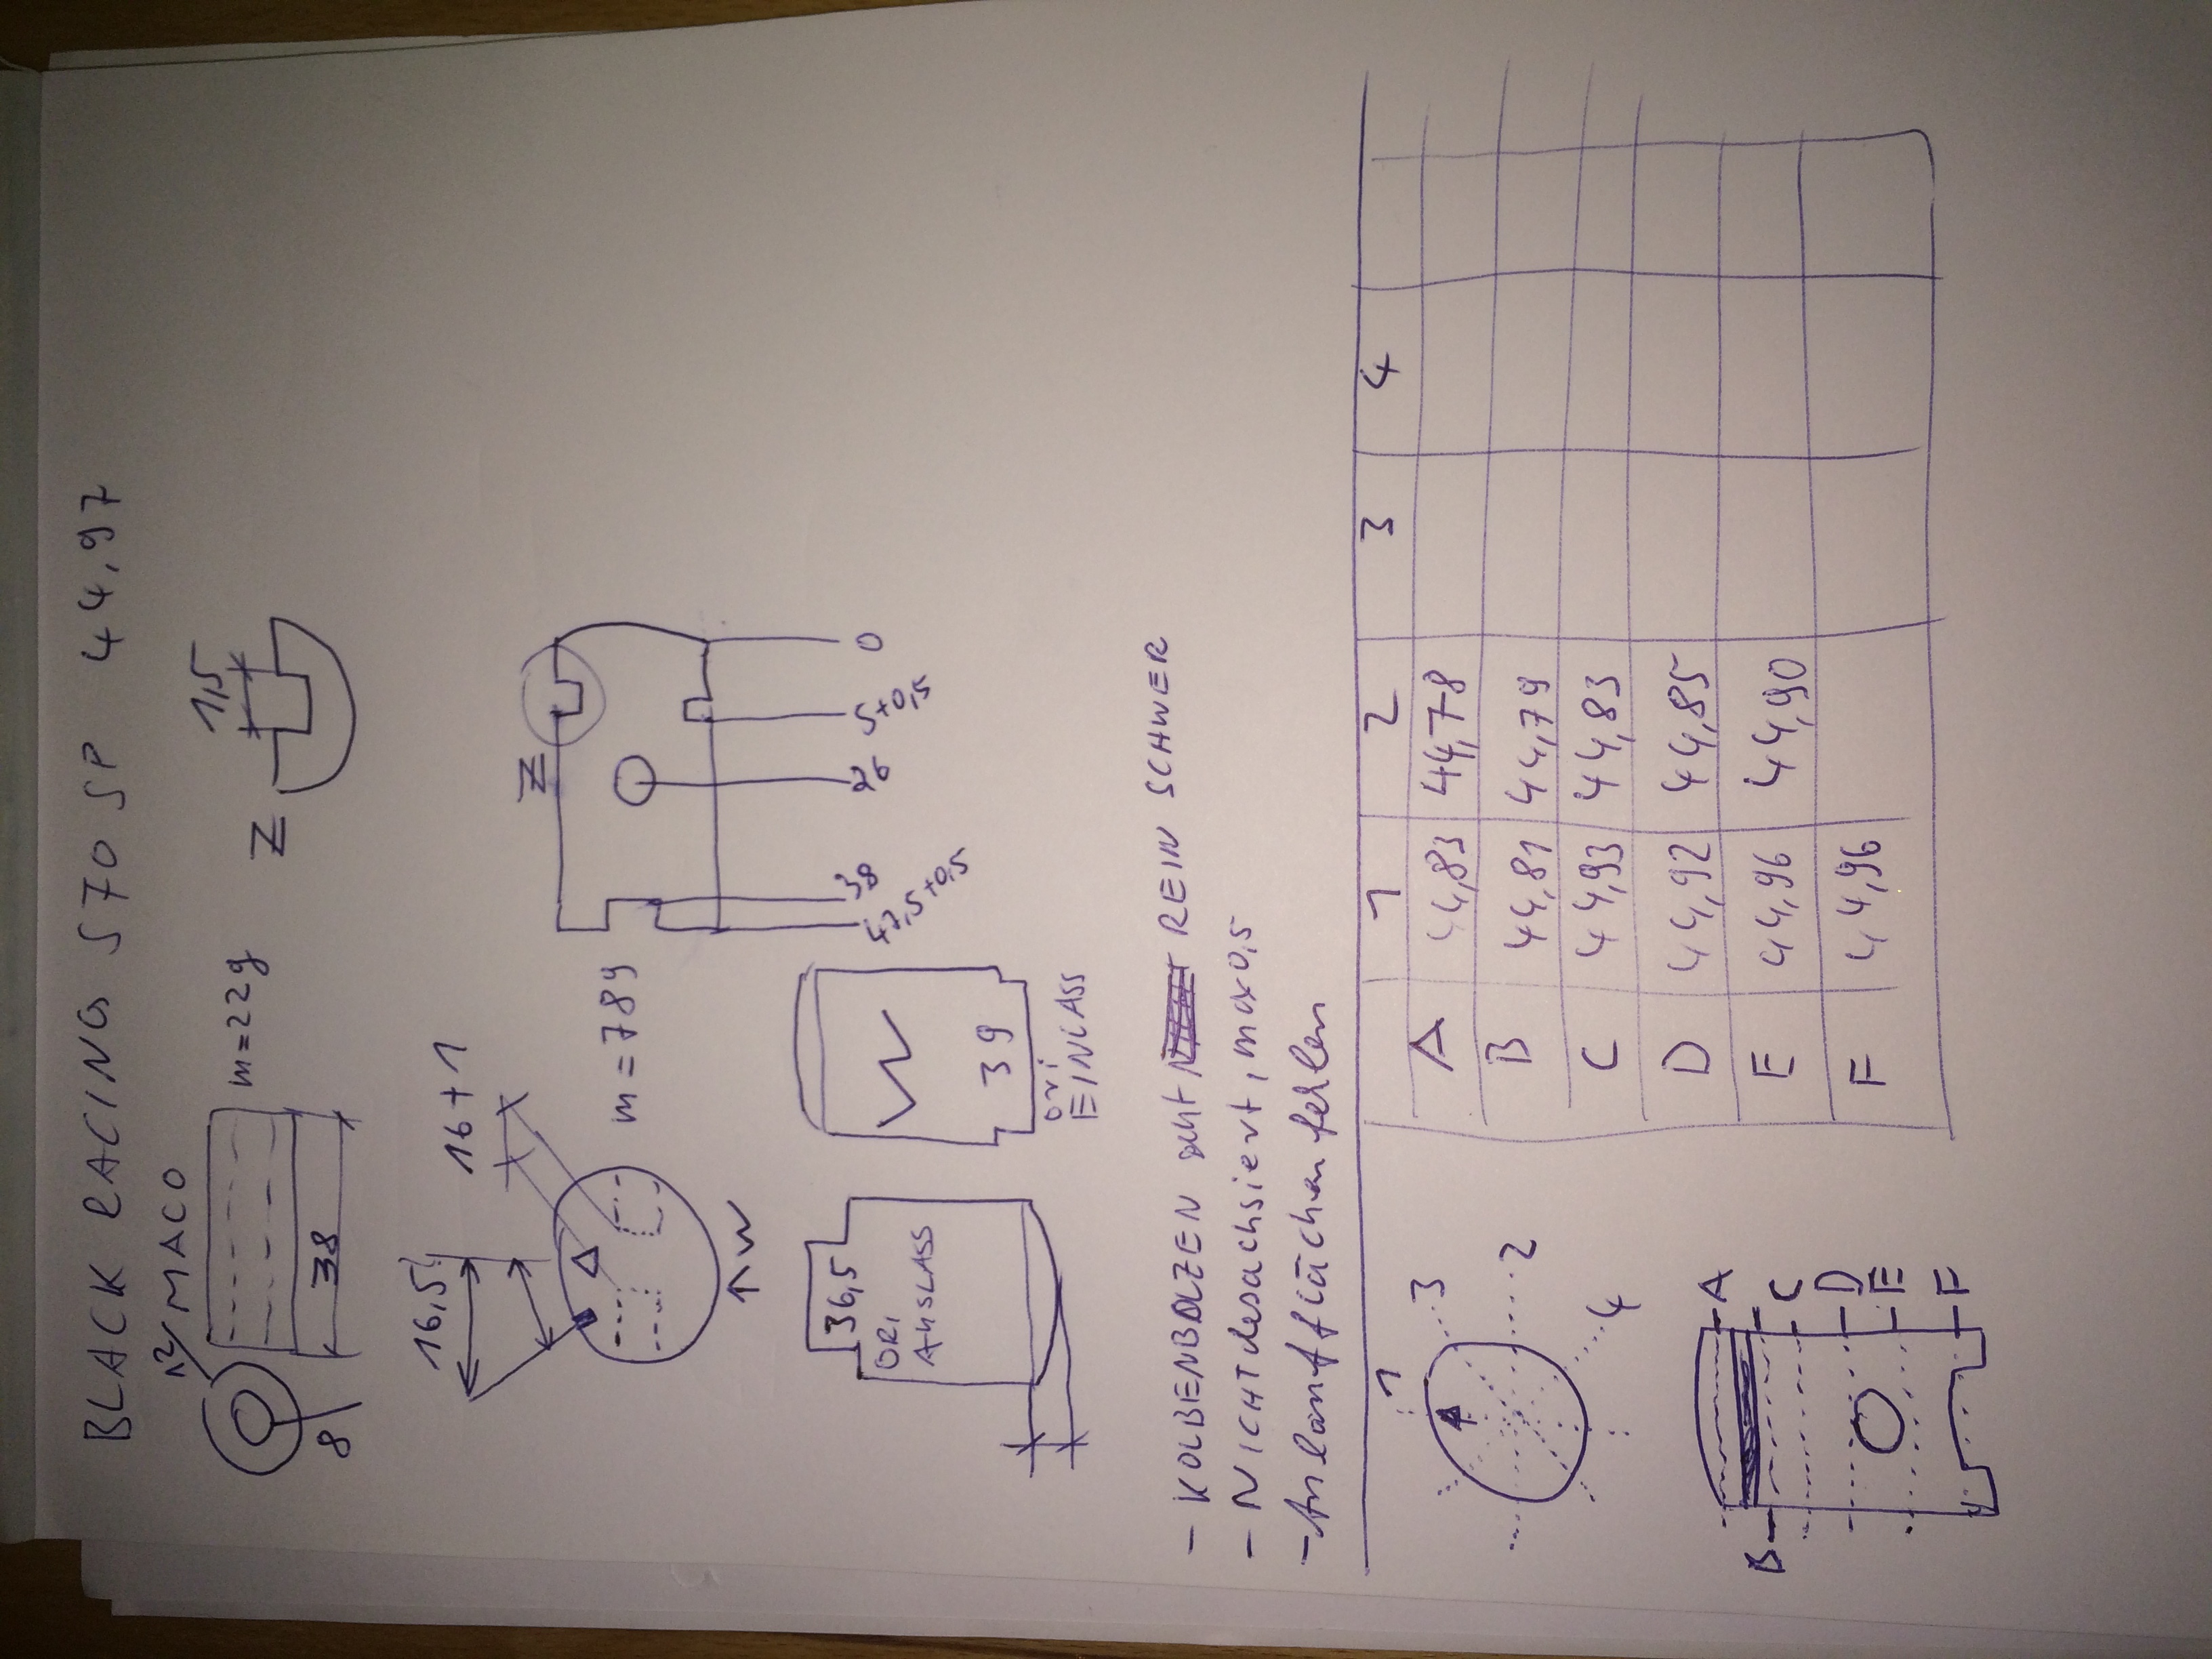 BLACK RACING S70 SP 44,97
12/MACO
m=22g
8
38
Z
1,5
16,5
16+1
m=78g
↑W
Z
42,5+0,5
38
26
5+0,5
0
36,5
ORI
AUSLASS
W
39
ori
EINLASS
- KOLBENBOLZEN geht REIN SCHWER
- NICHT desachsiert, max 0,5
- Anlaufflächen fehlen
1 3
2
4
1 2 3 4
A 44,83 44,78
B 44,81 44,79
C 44,93 44,83
D 44,92 44,85
E 44,96 44,90
F 44,96
A
B
C
D
E
F